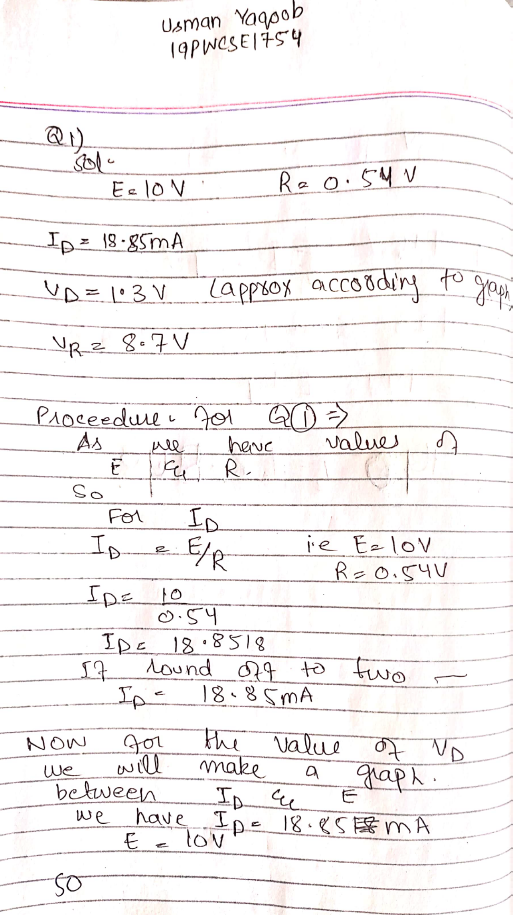 Usman Yaqoob
19PWCSE1754
Q1)
Sol:-
E = 10 V R = 0.54 V
I_D = 18.85mA
V_D = 1.3 V (approx according to graph
V_R = 8.7 V
Proceedure: for Q① ⇒
As we have values of
E & R.
So
For I_D
I_D = E/R i.e E = 10V
R = 0.54V
I_D = 10
0.54
I_D = 18.8518
If round off to two —
I_D = 18.85mA
NOW for the value of V_D
we will make a graph.
between I_D & E
we have I_D = 18.85 mA
E = 10V
SO